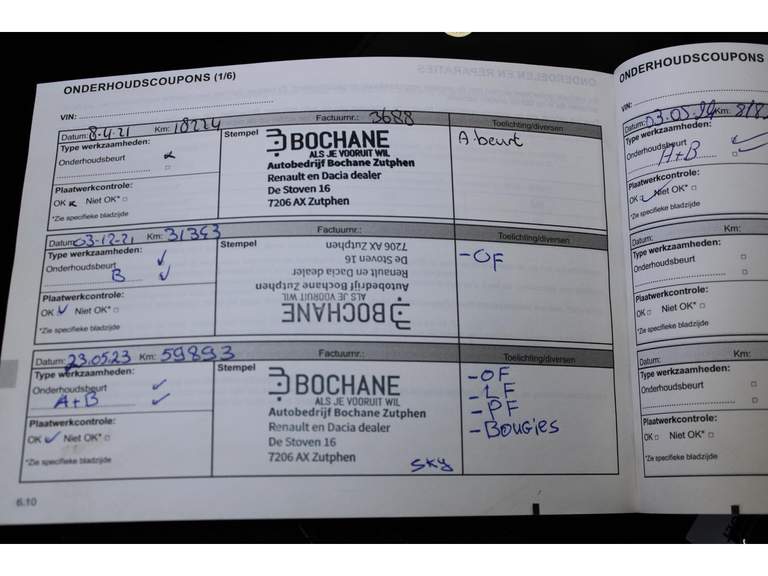 ONDERHOUDSCOUPONS (1/6)
VIN:
Datum: 8-4-21 Km: 18224 Factuurnr.: 3688 Toelichting/diversen
Type werkzaamheden:
Onderhoudsbeurt
Plaatwerkcontrole:
OK Niet OK*
*Zie specifieke bladzijde
Stempel
BOCHANE
ALS JE VOORUIT WIL
Autobedrijf Bochane Zutphen
Renault en Dacia dealer
De Stoven 16
7206 AX Zutphen
A beurt
Datum: 03-12-21 Km: 31393 Factuurnr.: Toelichting/diversen
Type werkzaamheden:
Onderhoudsbeurt
B
Plaatwerkcontrole:
OK Niet OK*
*Zie specifieke bladzijde
Stempel
7206 AX Zutphen
De Stoven 16
Renault en Dacia dealer
Autobedrijf Bochane Zutphen
ALS JE VOORUIT WIL
BOCHANE
-OF
Datum: 23.05.23 Km: 59893 Factuurnr.: Toelichting/diversen
Type werkzaamheden:
Onderhoudsbeurt
A+B
Plaatwerkcontrole:
OK Niet OK*
*Zie specifieke bladzijde
Stempel
BOCHANE
ALS JE VOORUIT WIL
Autobedrijf Bochane Zutphen
Renault en Dacia dealer
De Stoven 16
7206 AX Zutphen
SKY
-OF
-IF
-PF
-Bougies
6.10
ONDERHOUDSCOUPONS
VIN:
Datum: 03-05-24 Km:
Type werkzaamheden:
Onderhoudsbeurt
A+B
Plaatwerkcontrole:
OK Niet OK*
*Zie specifieke bladzijde
Datum: Km:
Type werkzaamheden:
Onderhoudsbeurt
Plaatwerkcontrole:
OK Niet OK*
*Zie specifieke bladzijde
Datum: Km:
Type werkzaamheden:
Onderhoudsbeurt
Plaatwerkcontrole:
OK Niet OK*
*Zie specifieke bladzijde